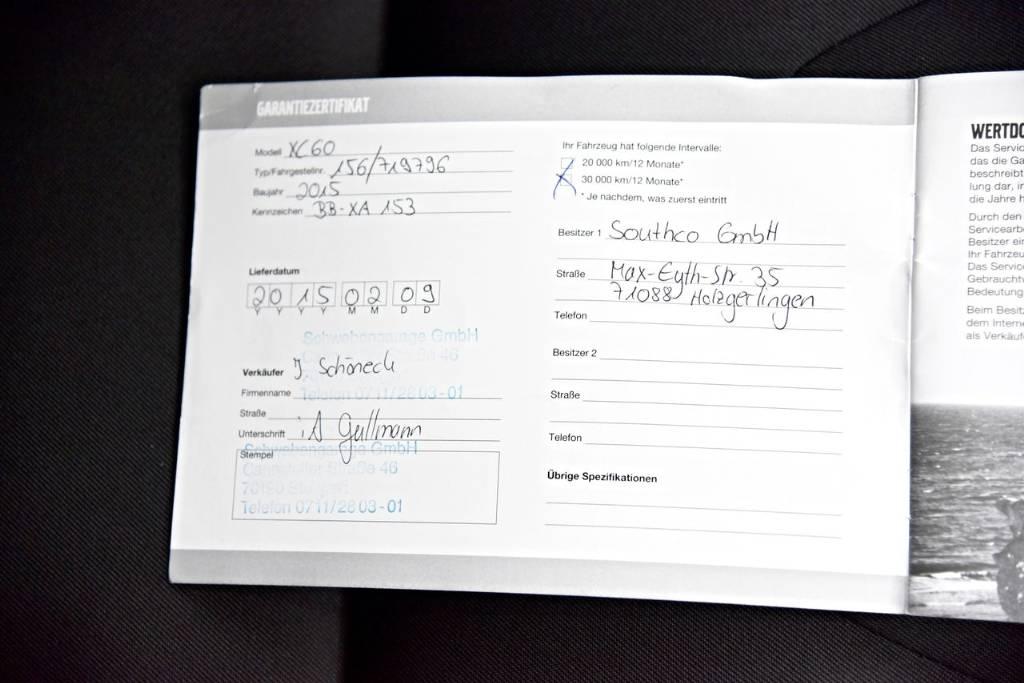 GARANTIEZERTIFIKAT
Modell XC60
Typ/Fahrgestellnr. 156/719796
Baujahr 2015
Kennzeichen BB-XA 153
Lieferdatum
2015 02 09
Y Y Y Y M M D D
Schwabengarage GmbH
46
Verkäufer J. Schöneck
Firmenname
Telefon 0711/2803-01
Straße
Unterschrift i.A Gullmann
Schwabengarage GmbH
Stempel
Cannstatter Straße 46
70190 Stuttgart
Telefon 0711/2803-01
Ihr Fahrzeug hat folgende Intervalle:
20 000 km/12 Monate*
30 000 km/12 Monate*
* Je nachdem, was zuerst eintritt
Besitzer 1 Southco GmbH
Straße Max-Eyth-Str. 35
71088 Holzgerlingen
Telefon
Besitzer 2
Straße
Telefon
Übrige Spezifikationen
WERTDO
Das Servic
das die Ga
beschreibt
lung dar, in
die Jahre h
Durch den
Servicearb
Besitzer ein
Ihr Fahrzeu
Das Service
Gebraucht
Bedeutung
Beim Besit
dem Interne
als Verkäuf